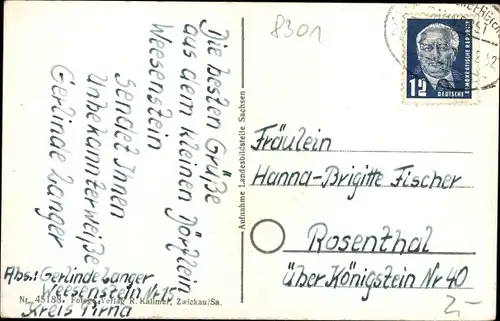 8301
Die besten Grüße
aus dem kleinen Dörflein
Weesenstein
sendet Ihnen
Unbekannterweiße
Gerlinde Langer
Abs.: Gerlinde Langer
Weesenstein Nr 15
Kreis Pirna
Nr. 45188 Fotogr. Verlag R. Kallmer, Zwickau/Sa.
Aufnahme Landesbildstelle Sachsen
DEUTSCHE
DEMOKRATISCHE REPUBLIK
12
Fräulein
Hanna-Brigitte Fischer
Rosenthal
über Königstein Nr 40
2,-